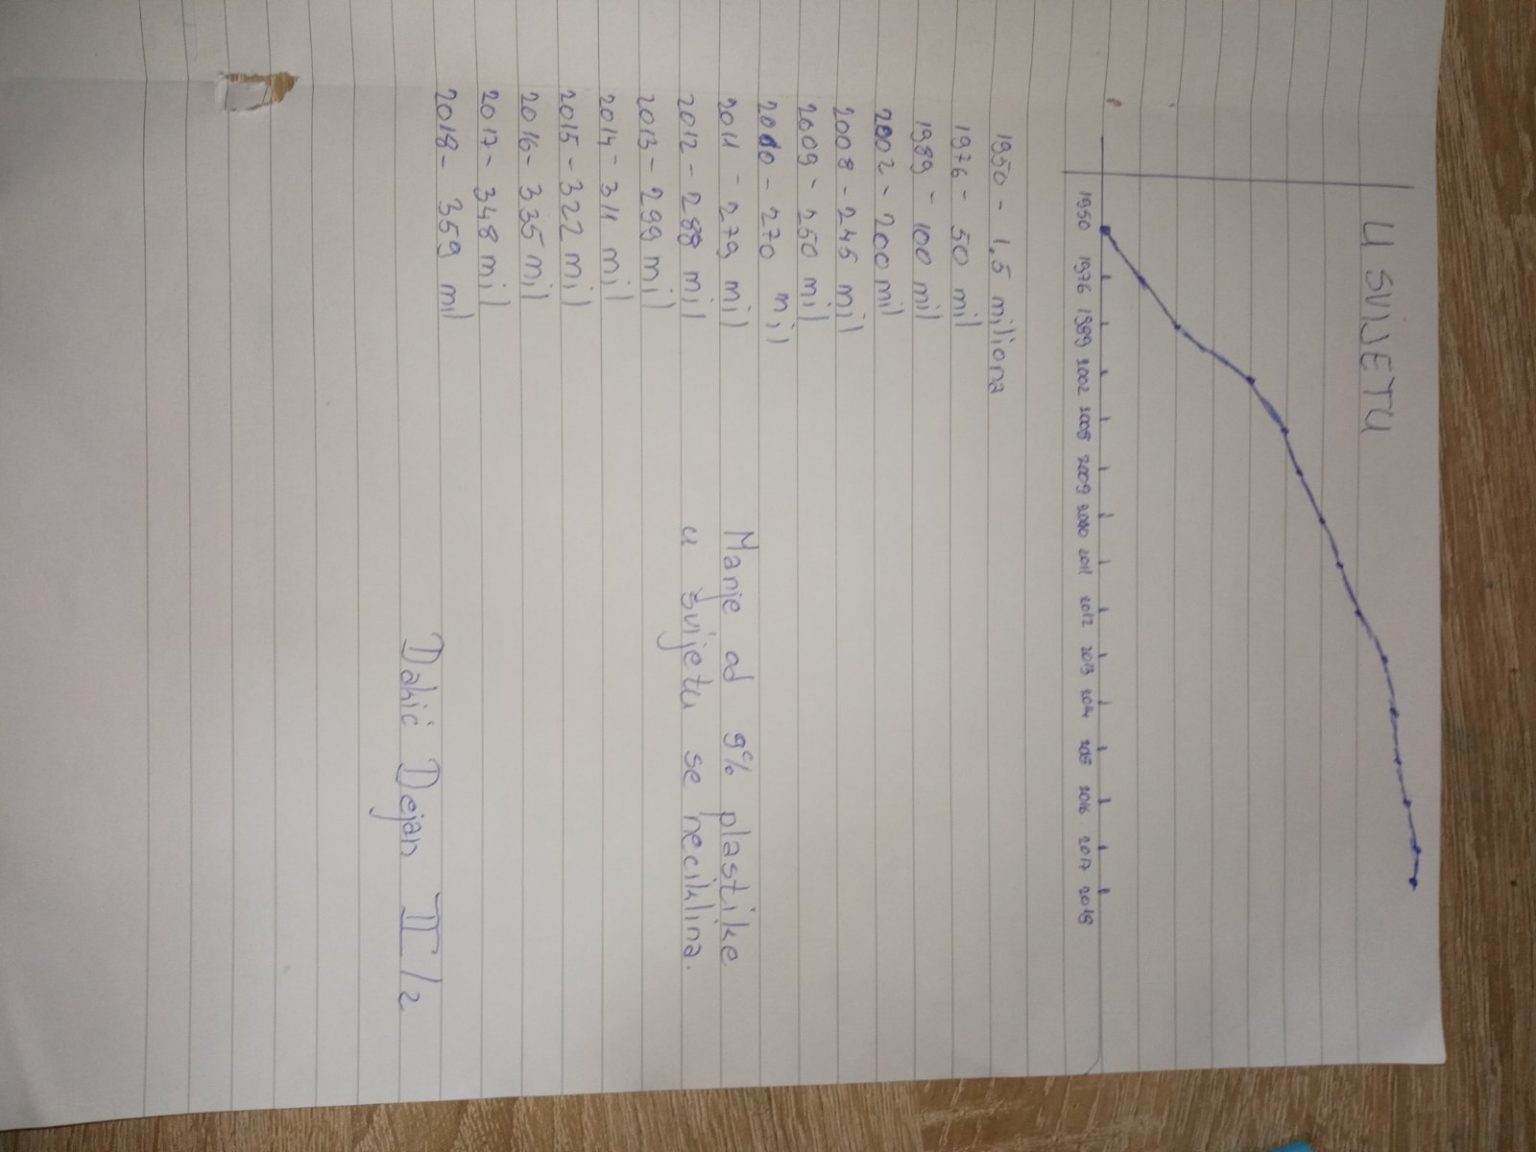 U SVIJETU
1950 1976 1989 2002 2008 2009 2010 2011 2012 2013 2014 2015 2016 2017 2018
1950 - 1,5 miliona
1976 - 50 mil
1989 - 100 mil
2002 - 200 mil
2008 - 245 mil
2009 - 250 mil
2010 - 270 mil
2011 - 279 mil
2012 - 288 mil
2013 - 299 mil
2014 - 311 mil
2015 - 322 mil
2016 - 335 mil
2017 - 348 mil
2018 - 359 mil
Manje od 9% plastike
u svijetu se reciklira.
Dakić Dejan II/2